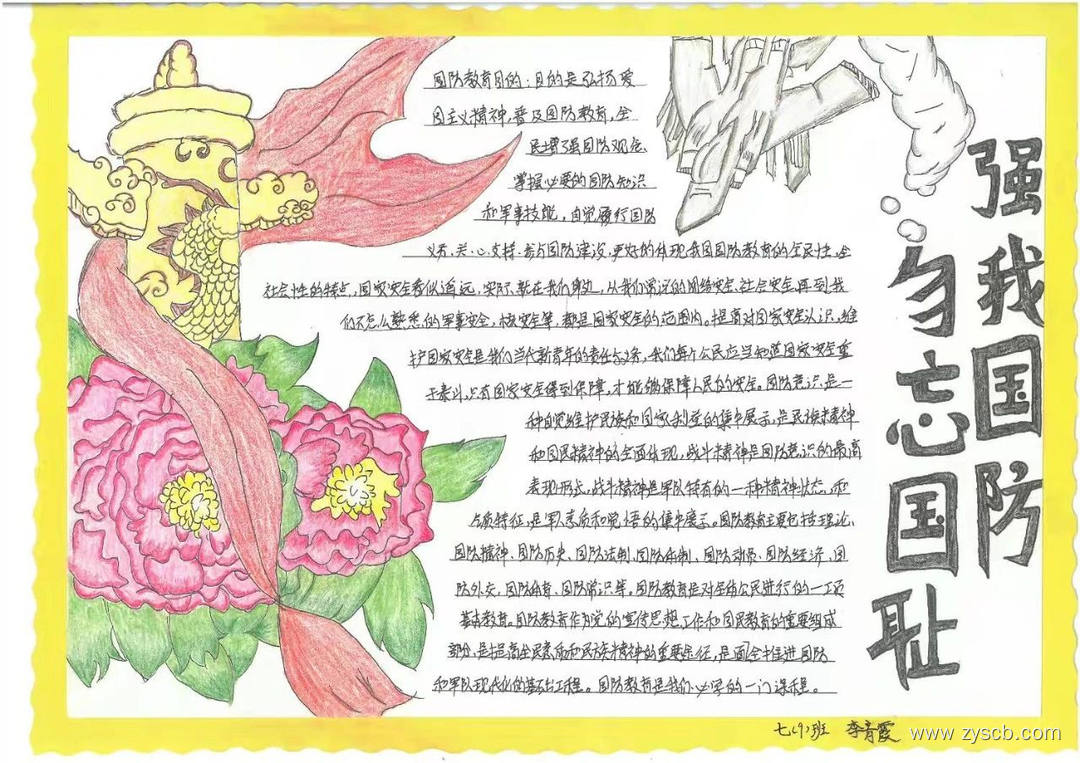 强我国防
勿忘国耻
国防教育目的:目的是弘扬爱
国主义精神,普及国防教育,全
民增强国防观念
掌握必要的国防知识
和军事技能,自觉履行国防
义务,关心支持、参与国防建设,更好的体现我国国防教育的全民性,全
社会性的特点,国家安全看似遥远,实际就在我们身边,从我们常说的网络安全、社会安全再到我
们不怎么熟悉的军事安全,核安全等,都是国家安全的范围内。提高对国家安全认识,维
护国家安全是我们当代新青年的责任与义务,我们每个公民应当知道国家安全重
于泰山,只有国家安全得到保障,才能够保障人民的安全。国防意识是一
种自觉维护民族和国家利益的集中展示,是民族精神
和国民精神的全面体现,战斗精神是国防意识的最高
表现形点,战斗精神是军队特有的一种精神状态,和
气质特征,是军人素质和觉悟的集中展示。国防教育主要包括理论、
国防精神、国防历史、国防法制、国防体制、国防动员、国防经济、国
防外交、国防体育、国防常识等,国防教育是对全体公民进行的一项
基本教育。国防教育作为党的宣传思想工作和国民教育的重要组成
部分,是提高全民素质和民族精神的重要途径,是面全促进国防
和军队现代化的基础工程。国防教育是我们必学的一门课程。
七(9)班 李青霞
www.zyscb.com